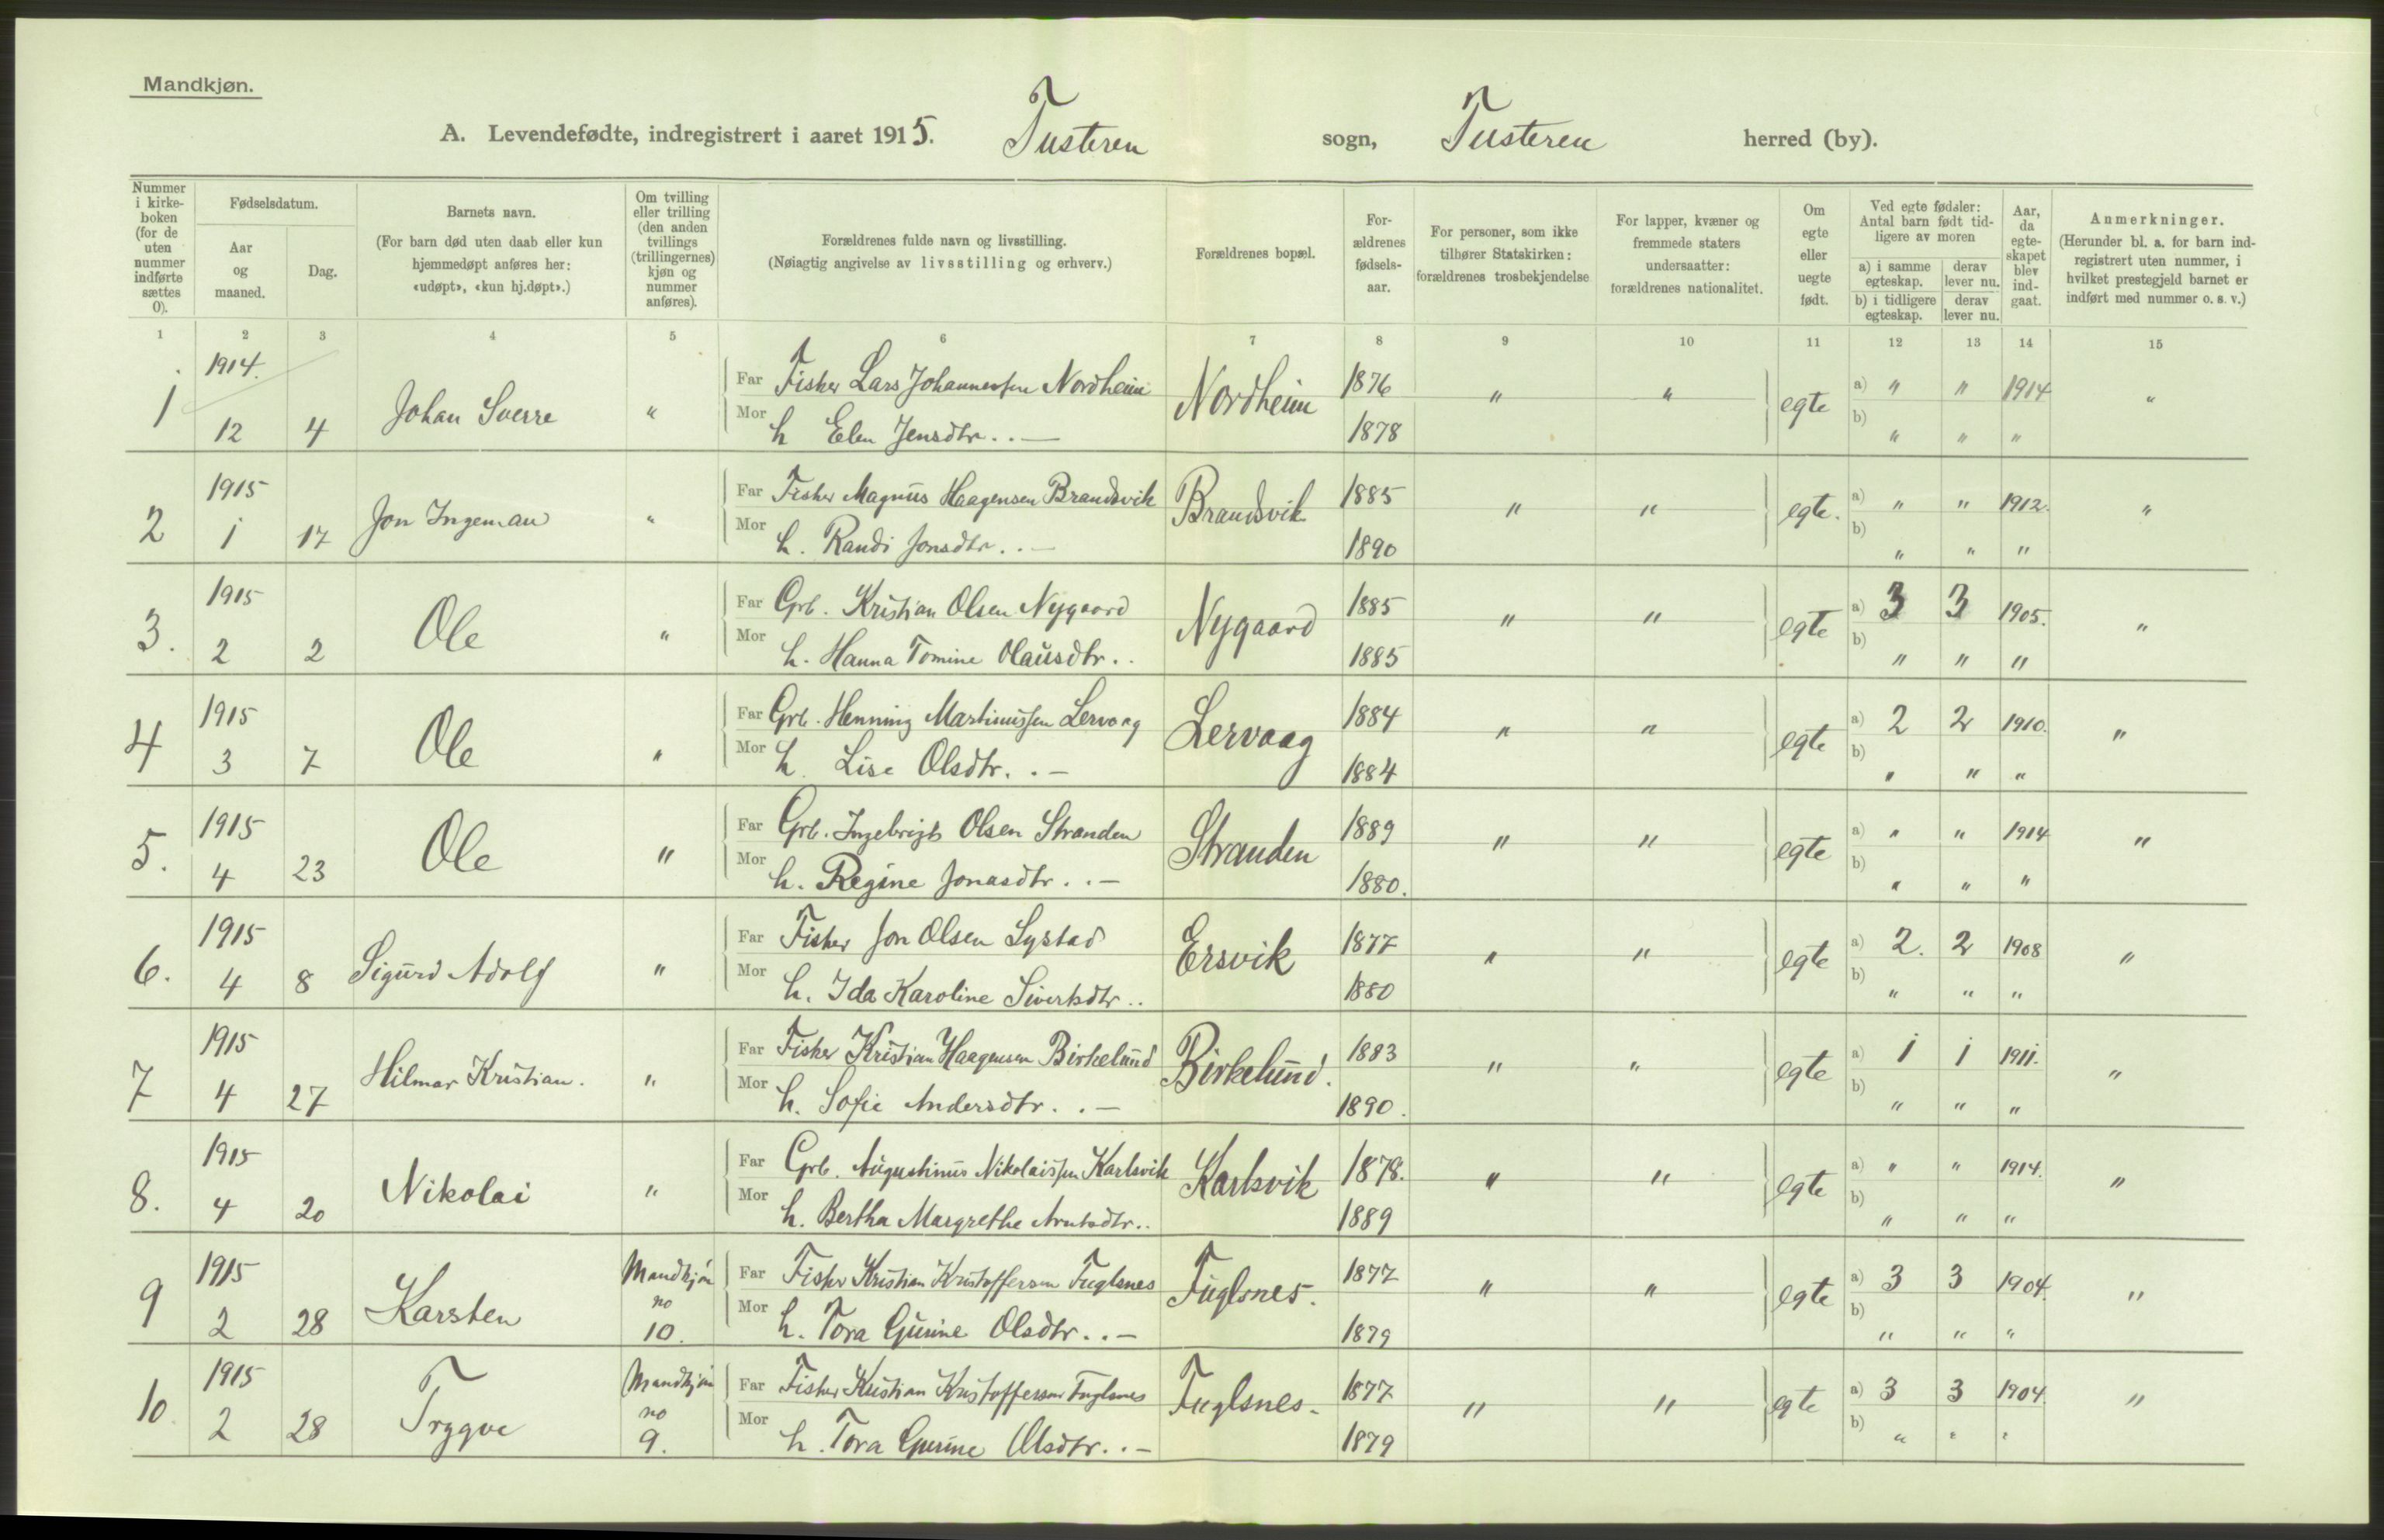 Mandkjøn.
A. Levendefødte, indregistrert i aaret 1915. Tusteren sogn, Tusteren herred (by).
Nummer i kirke-boken (for de uten nummer indførte sættes 0).
Fødselsdatum.
Aar og maaned.
Dag.
Barnets navn.
(For barn død uten daab eller kun hjemmedøpt anføres her: «udøpt», «kun hj.døpt».)
Om tvilling eller trilling (den anden tvillings (trillingernes) kjøn og nummer anføres).
Forældrenes fulde navn og livsstilling.
(Nøiagtig angivelse av livsstilling og erhverv.)
Forældrenes bopæl.
For-ældrenes fødsels-aar.
For personer, som ikke tilhører Statskirken: forældrenes trosbekjendelse
For lapper, kvæner og fremmede staters undersaatter: forældrenes nationalitet.
Om egte eller uegte født.
Ved egte fødsler: Antal barn født tid-ligere av moren
a) i samme egteskap. derav lever nu.
b) i tidligere egteskap. derav lever nu.
Aar, da egte-skapet blev ind-gaat.
Anmerkninger.
(Herunder bl. a. for barn ind-registrert uten nummer, i hvilket prestegjeld barnet er indført med nummer o. s. v.)
1 2 3 4 5 6 7 8 9 10 11 12 13 14 15
1914. Far Fisker Lars Johannessen Nordheim 1876 a) " " 1914
1 12 4 Johan Sverre " Mor h Elen Jensdtr. . — Nordheim 1878 " " egte b) " " " "
1915 Far Fisker Magnus Haagensen Brandsvik 1885 a) " " 1912.
2 1 17 Jon Ingeman " Mor h. Randi Jonsdtr. . — Brandsvik 1890 " " egte. b) " " " "
1915 Far Grb. Kristian Olsen Nygaard 1885 a) 3 3 1905.
3. 2 2 Ole " Mor h. Hanna Tomine Olausdtr. . Nygaard 1885 " " egte b) " " " "
1915 Far Grb. Henning Martinussen Lervaag 1884 a) 2 2 1910.
4 3 7 Ole " Mor h. Lise Olsdtr. . — Lervaag 1884 " " egte b) " " " "
1915 Far Grb. Ingebrigt Olsen Stranden 1889 a) " " 1914
5. 4 23 Ole " Mor h. Regine Jonasdtr. . — Stranden 1880. " " egte b) " " " "
1915 Far Fisker Jon Olsen Lystad 1877 a) 2. 2 1908
6. 4 8 Sigurd Adolf " Mor h. Ida Karoline Sivertsdtr . . Ersvik 1880 " " egte b) " " " "
1915 Far Fisker Kristian Haagensen Birkelund 1883 a) 1 1 1911.
7 4 27 Hilmar Kristian. " Mor h. Sofie Andersdtr. . — Birkelund. 1890. " " egte b) " " " "
1915 Far Grb. Augustinus Nikolaissen Karlsvik 1878. a) " " 1914.
8. 4 20 Nikolai " Mor h. Bertha Margrethe Arntsdtr. . Karlsvik 1889 " " egte b) " " " "
1915 Mandkjøn Far Fisker Kristian Kristoffersen Fuglsnes 1877 a) 3 3 1904.
9 2 28 Karsten no 10. Mor h. Tora Gurine Olsdtr. . — Fuglsnes. 1879 " " egte b) " " " "
1915 Mandkjøn Far Fisker Kristian Kristoffersen Fuglsnes 1877 a) 3 3 1904.
10. 2 28 Trygve no 9. Mor h. Tora Gurine Olsdtr. . — Fuglsnes. 1879 " " egte b) " " " "